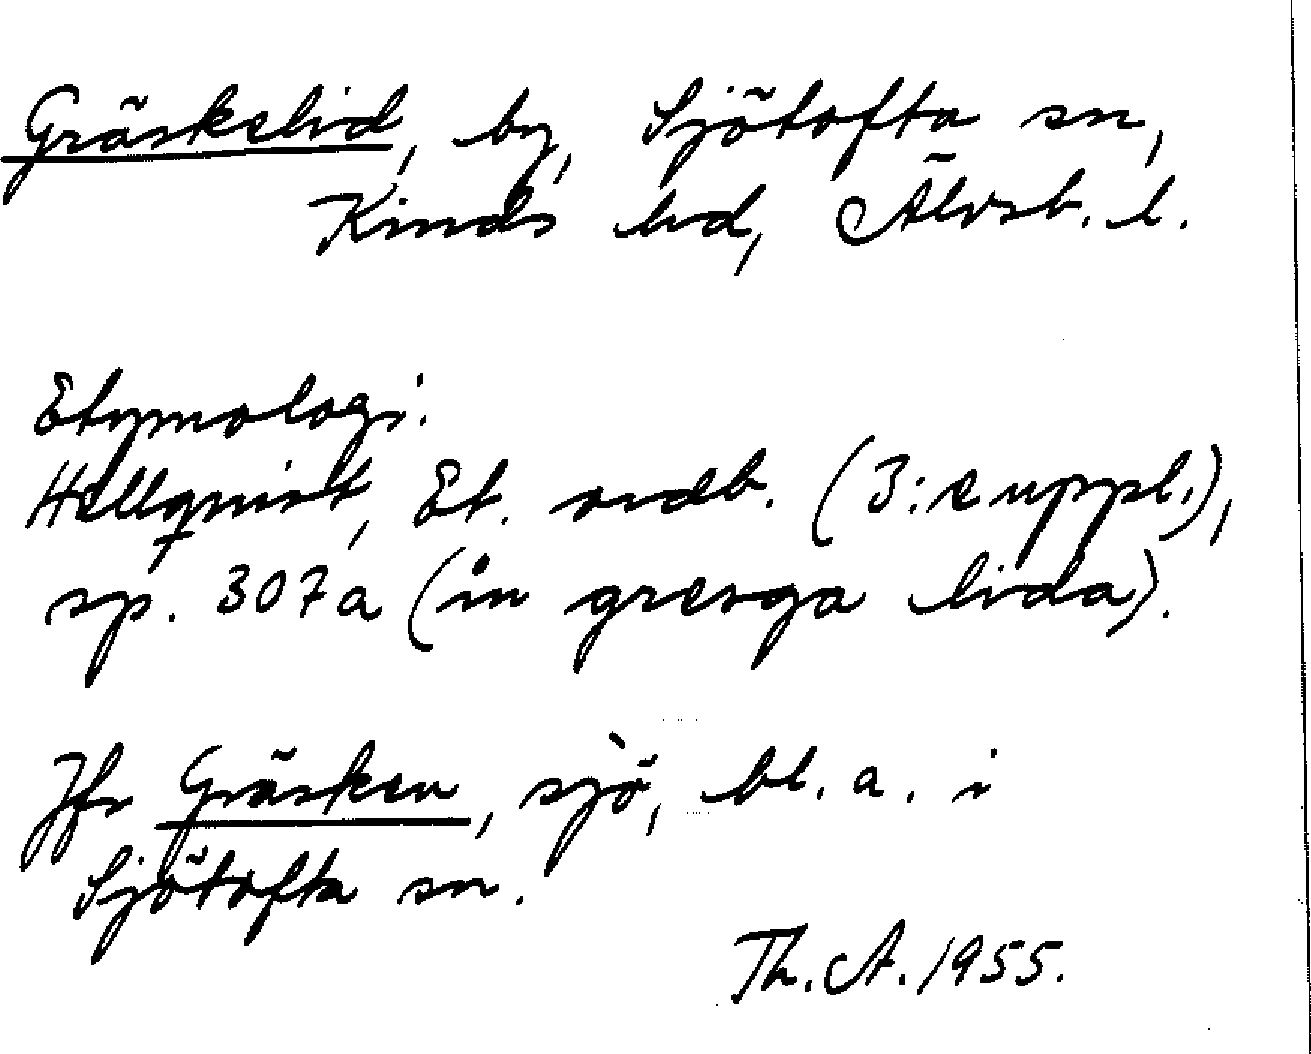 Gräskelid, by, Sjötofta sn,
Kinds hd, Älvsb. l.
Etymologi.
Hellquist, Et. ordb. (3:e uppl.),
sp. 307a (ån gresga lida).
Jfr Gräsken, sjö, bl. a. i
Sjötofta sn.
Th. A. 1955.